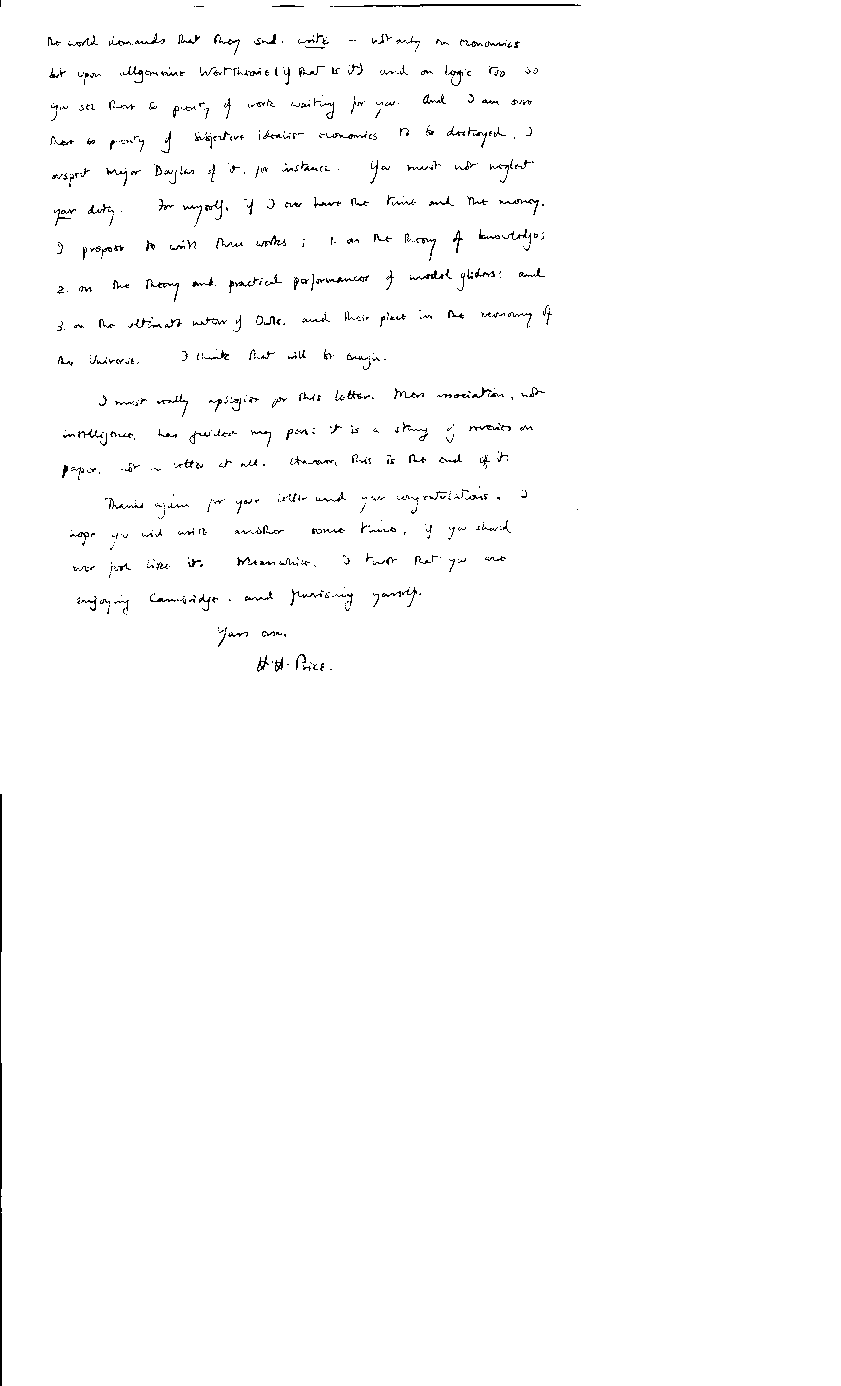 the world demands that they shd. write – not only on economics
but upon allgemeine Werttheorie (if that is it) and on logic too so
you see there is plenty of work waiting for you. And I am sure
there is plenty of subjective idealist economics to be destroyed, I
suspect Major Douglas of it, for instance. You must not neglect
your duty. For myself, if I ever have the time and the money,
I propose to write three works; 1. on the theory of knowledge;
2. on the theory and practical performances of model gliders; and
3. on the ultimate nature of Owls, and their place in the economy of
the Universe. I think that will be enough.
I must really apologise for this letter. Mere association, not
intelligence, has guided my pen: it is a string of reveries on
paper, not a letter at all. However, this is the end of it.
Thanks again for your letter and your congratulations. I
hope you will write another some time, if you should
ever feel like it. Meanwhile, I trust that you are
enjoying Cambridge, and flourishing yourself.
Yours ever,
H.H. Price.